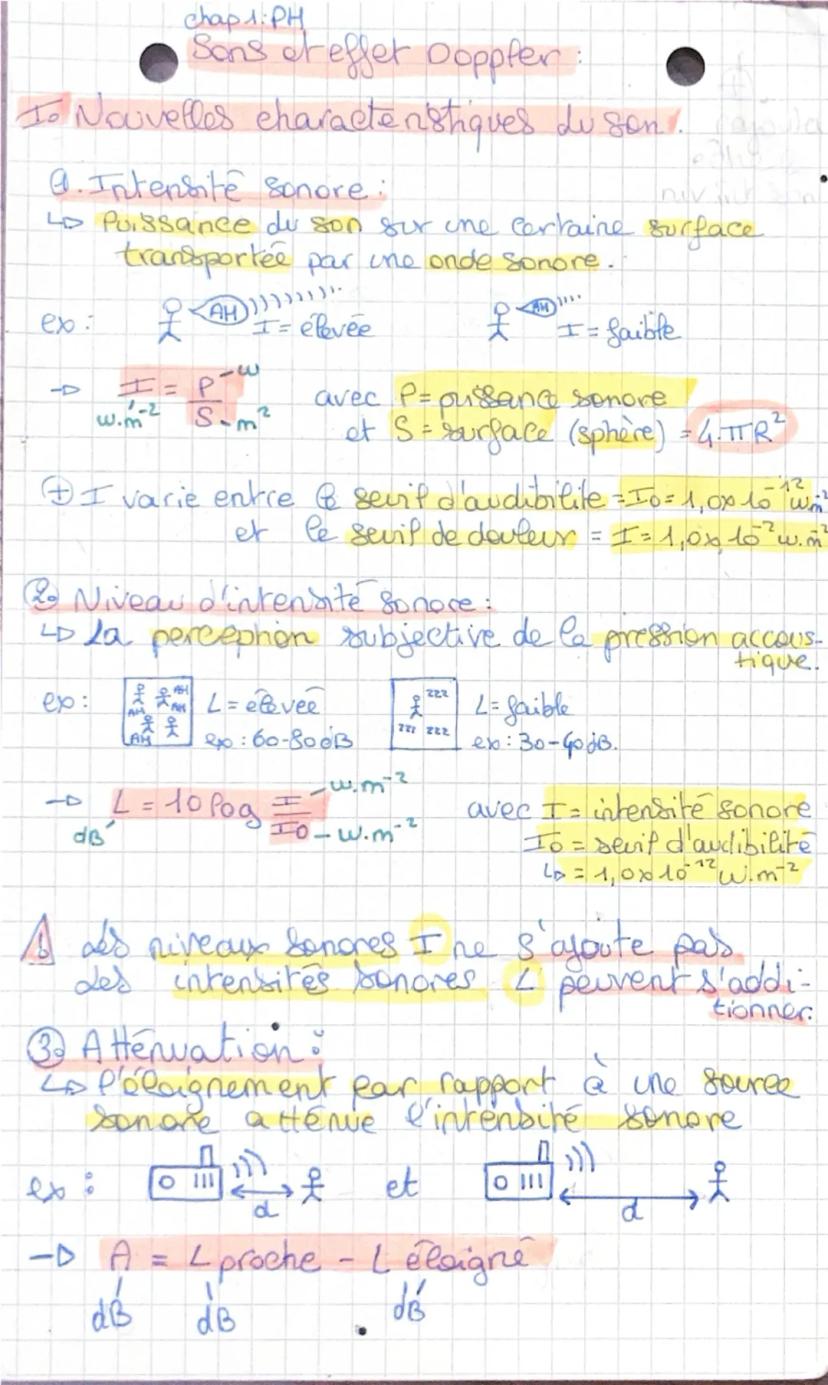 chap 1: PH
Sons et effet Doppler :
I. Nouvelles charactéristiques du son.
1. Intensité sonore :
↳ Puissance du son sur une certaine surface
transportée par une onde sonore.
ex : AH I = élevée AH I = faible
→ I = P/S W.m⁻² W m² avec P = puissance sonore
et S = surface (sphère) = 4.πR²
⊕ I varie entre le seuil d'audibilite = I0 = 1,0x10⁻¹² W.m⁻²
et le seuil de douleur = I = 1,0x10⁻² W.m⁻²
2. Niveau d'intensité sonore :
↳ La perception subjective de la pression accous-
tique.
ex : AH AH AH AH L = élevée zzz zzz zzz L = faible
ex : 60-80dB ex : 30-40dB.
→ L = 10 log I/I0 W.m⁻² W.m⁻² avec I = intensité sonore
dB I0 = seuil d'audibilité
↳ = 1,0x10⁻¹² W.m⁻²
⚠ Les niveaux sonores I ne s'ajoute pas
des intensités sonores L peuvent s'addi-
tionner.
3. Atténuation :
↳ l'éloignement par rapport à une source
sonore atténue l'intensité sonore
ex : d et d
→ A = L proche - L éloigné
dB dB dB